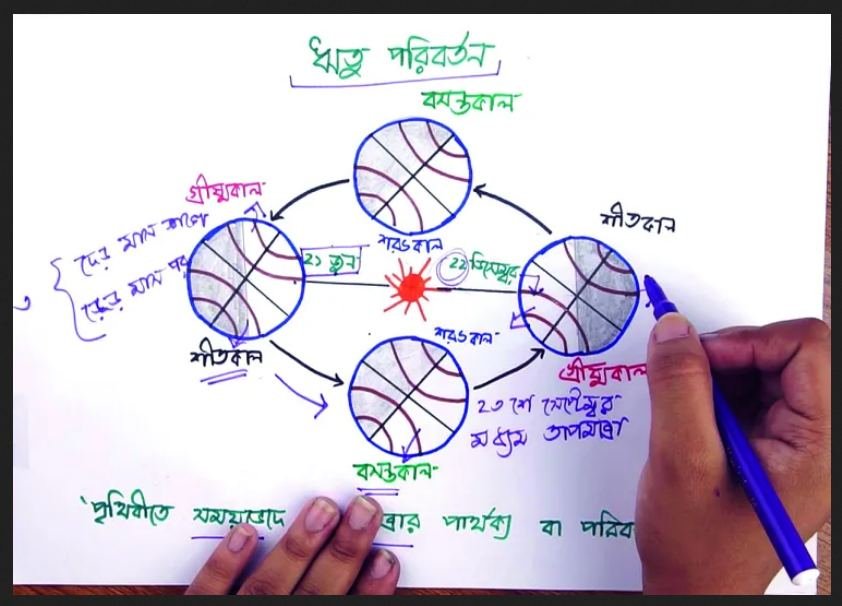 ঋতু পরিবর্তন
বসন্তকাল
গ্রীষ্মকাল
শীতকাল
শরৎকাল
দেড় মাস আগে
দেড় মাস পর
২১ জুন
২২ ডিসেম্বর
শীতকাল
শরৎকাল
গ্রীষ্মকাল
২৩ শে সেপ্টেম্বর
মধ্যম তাপমাত্রা
বসন্তকাল
পৃথিবীতে সময়ভেদে পার্থক্য বা